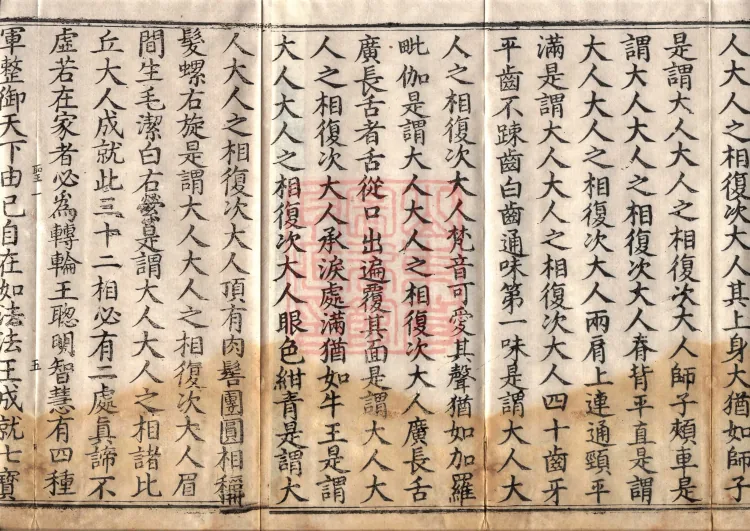 人大人之相復次大人其上身大猶如師子
是謂大人大人之相復次大人師子頰車是
謂大人大人之相復次大人脊背平直是謂
大人大人之相復次大人兩肩上連通頸平
滿是謂大人大人之相復次大人四十齒牙
平齒不踈齒白齒通味第一味是謂大人大
人之相復次大人梵音可愛其聲猶如加羅
毗伽是謂大人大人之相復次大人廣長舌
廣長舌者舌從口出遍覆其面是謂大人大
人之相復次大人承淚處滿猶如牛王是謂
大人大人之相復次大人眼色紺青是謂大
人大人之相復次大人頂有肉髻團圓相稱
髮螺右旋是謂大人大人之相復次大人眉
間生毛潔白右縈是謂大人大人之相諸比
丘大人成就此三十二相必有二處眞諦不
虛若在家者必為轉輪王聰明智慧有四種
聖 五
軍整御天下由已自在如法法王成就七寶